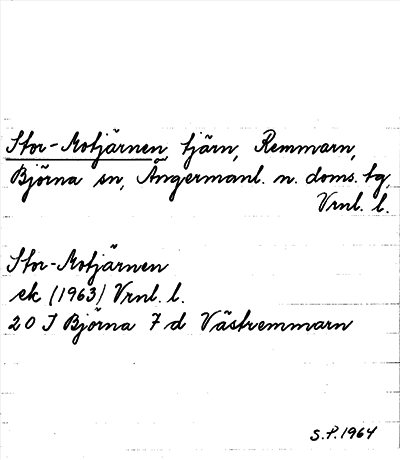 Stor-Motjärnen tjärn, Remmarn,
Björna sn, Ångermanl. n. doms. tg,
Vrnl. l.
Stor-Motjärnen
ek (1963) Vrnl. l.
20 J Björna 7 d Västremmarn
S.P. 1964